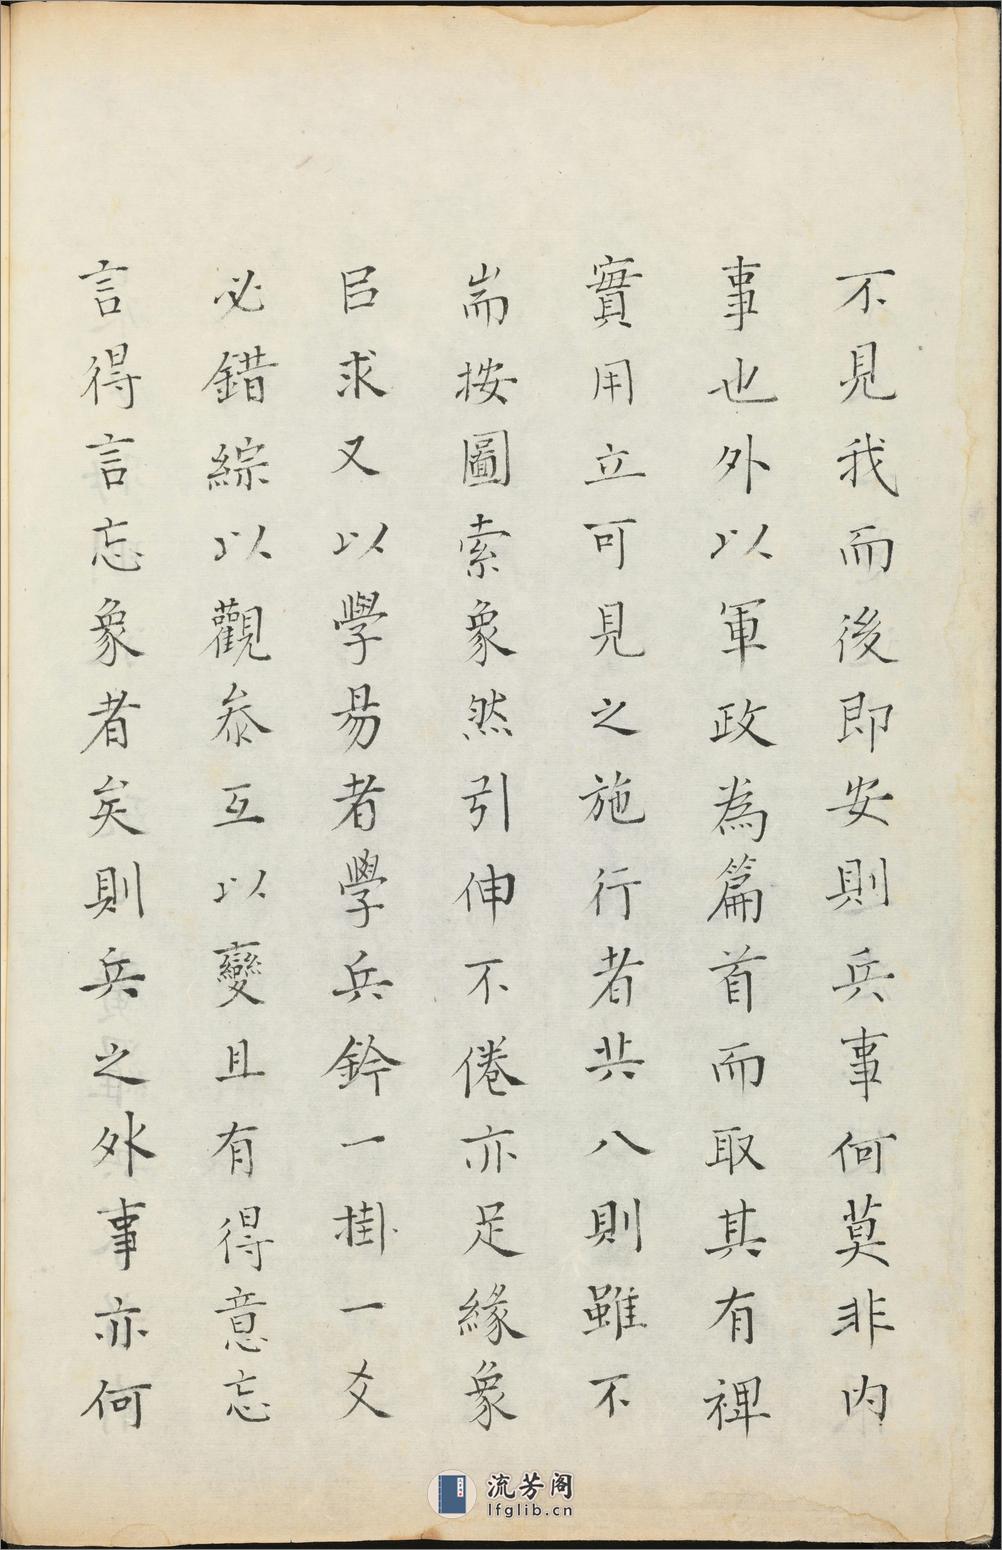 不見我而後即安則兵事何莫非內
事也外以軍政為篇首而取其有裨
實用立可見之施行者共八則雖不
耑按圖索象然引伸不倦亦足緣象
㠯求又以學昜者學兵鈐一掛一爻
必錯綜以觀叅互以變且有得意忘
言得言忘象者矣則兵之外事亦何
流芳阁
lfglib.cn